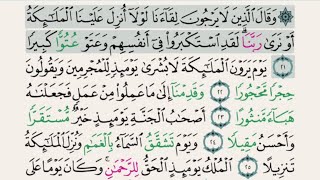 ۞ وَقَالَ ٱلَّذِينَ لَا يَرْجُونَ لِقَآءَنَا لَوْلَآ أُنزِلَ عَلَيْنَا ٱلْمَلَـٰٓئِكَةُ
أَوْ نَرَىٰ رَبَّنَا ۗ لَقَدِ ٱسْتَكْبَرُوا۟ فِىٓ أَنفُسِهِمْ وَعَتَوْ عُتُوًّا كَبِيرًا
٢١ يَوْمَ يَرَوْنَ ٱلْمَلَـٰٓئِكَةَ لَا بُشْرَىٰ يَوْمَئِذٍ لِّلْمُجْرِمِينَ وَيَقُولُونَ
حِجْرًا مَّحْجُورًا ٢٢ وَقَدِمْنَآ إِلَىٰ مَا عَمِلُوا۟ مِنْ عَمَلٍ فَجَعَلْنَـٰهُ
هَبَآءً مَّنثُورًا ٢٣ أَصْحَـٰبُ ٱلْجَنَّةِ يَوْمَئِذٍ خَيْرٌ مُّسْتَقَرًّا
وَأَحْسَنُ مَقِيلًا ٢٤ وَيَوْمَ تَشَقَّقُ ٱلسَّمَآءُ بِٱلْغَمَـٰمِ وَنُزِّلَ ٱلْمَلَـٰٓئِكَةُ
تَنزِيلًا ٢٥ ٱلْمُلْكُ يَوْمَئِذٍ ٱلْحَقُّ لِلرَّحْمَـٰنِ ۚ وَكَانَ يَوْمًا عَلَى